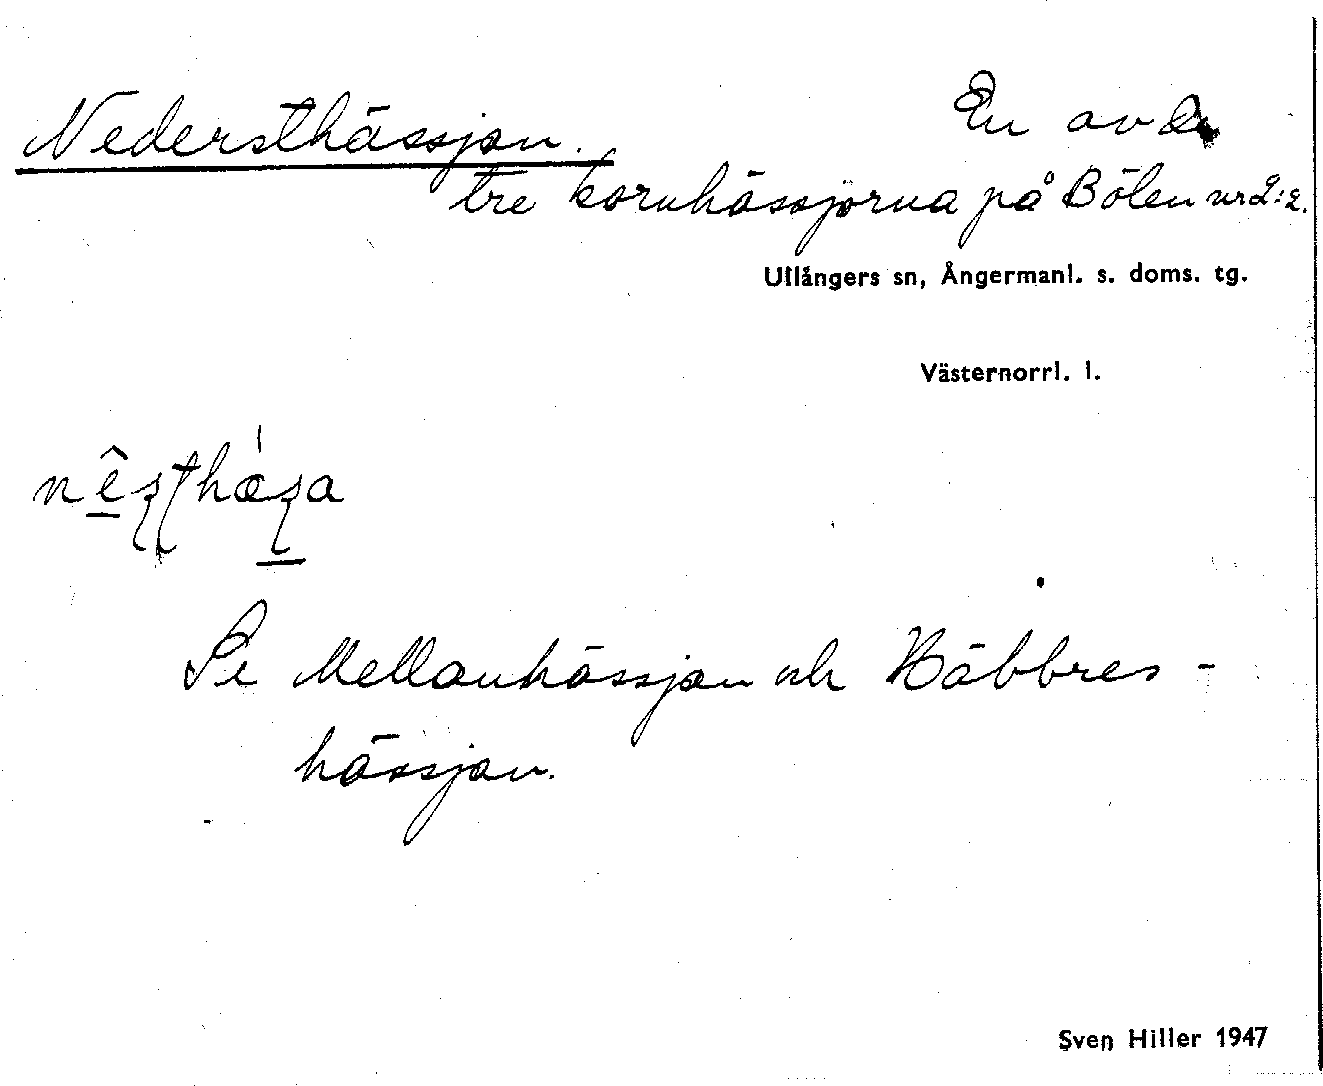 Nedersthässjan. En av de
tre kornhässjorna på Bölen nr 2:2.
Ullångers sn, Ångermanl. s. doms. tg.
Västernorrl. l.
Se Mellanhässjan och
hässjan.
Sven Hiller 1947